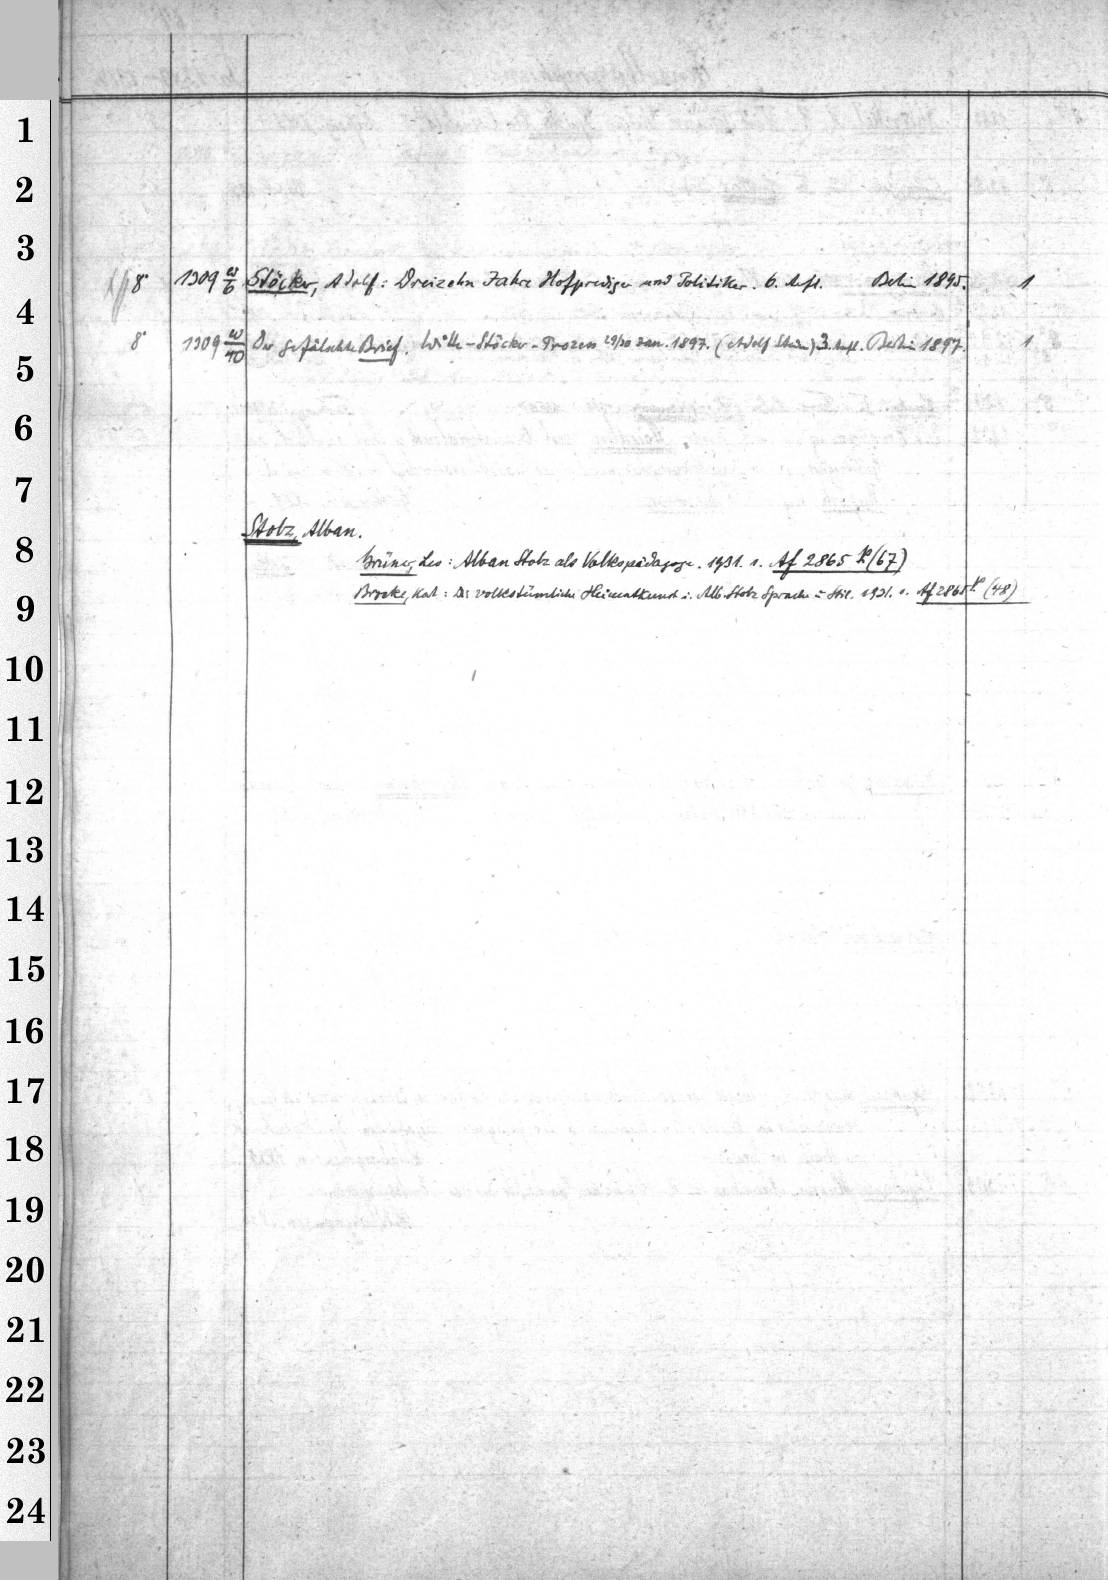 1
2
3
8° 1309 w/6 Stöcker, Adolf: Dreizehn Jahre Hofprediger und Politiker. 6. Aufl. Berlin 1895. 1
4
8° 1309 w/40 Der gefälschte Brief. Witte-Stöcker-Prozess 29/30 Jan. 1897. (Adolf Stein) 3. Aufl. Berlin 1897. 1
5
6
7
Stolz, Alban.
8
Grüner, Leo: Alban Stolz als Volkspädagoge. 1931. s. Af 2865 k (67)
9
Brocke, Kat: D. volkstümliche Heimatkunst i. Alb. Stolz Sprache u Stil. 1931. s. Af 2865 k (48)
10
11
12
13
14
15
16
17
18
19
20
21
22
23
24